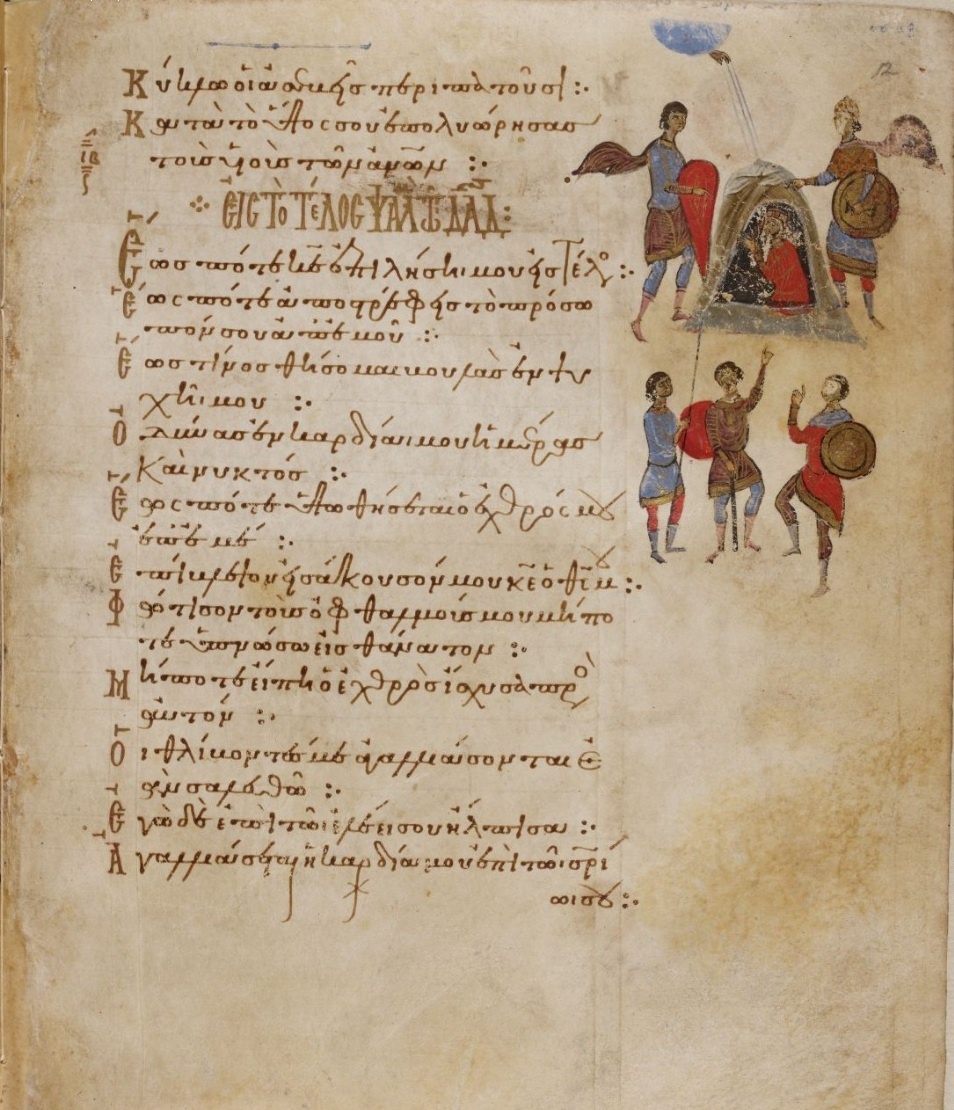 12
Κύκλω οἱ ἀσεβεῖς περιπατοῦσι :·
Κατὰ τὸ ὕψος σου ἐπολυώρησας
τοὺς υἱοὺς τῶν ἀν̅ων :·
ιβ
ΕἸΣ ΤῸ ΤΈΛΟΣ ΨΑΛ ΤΩ ΔΑ̅Δ :
Ἕως πότε κε̅ ἐπιλήση μου εἰς τέλος :·
Ἕως πότε ἀποστρέφεις τὸ πρόσω
πον σου ἀπ' ἐμοῦ :·
Ἕως τίνος θήσομαι βουλὰς ἐν ψυ
χῆ μου :·
Ὀδύνας ἐν καρδία μου ἡμέρας
καὶ νυκτός :·
Ἕως πότε ὑψωθήσεται ὁ ἐχθρός μου
ἐπ' ἐμέ :·
Ἐπίβλεψον εἰσάκουσόν μου κε̅ ὁ θς̅ μου :·
Φώτισον τοὺς ὀφθαλμούς μου μήπο
τε ὑπνώσω εἰς θάνατον :·
Μήποτε εἴπη ὁ ἐχθρὸς ἴσχυσα πρὸς
αὐτόν :·
Οἱ θλίβοντές με ἀγαλλιάσονται ἐ
ὰν σαλευθῶ :·
Ἐγὼ δὲ ἐπὶ τῶ ἐλέει σου ἤλπισα :·
Ἀγαλλιάσεται ἡ καρδία μου ἐπὶ τῶ σρ̅ί
ωι σου :·